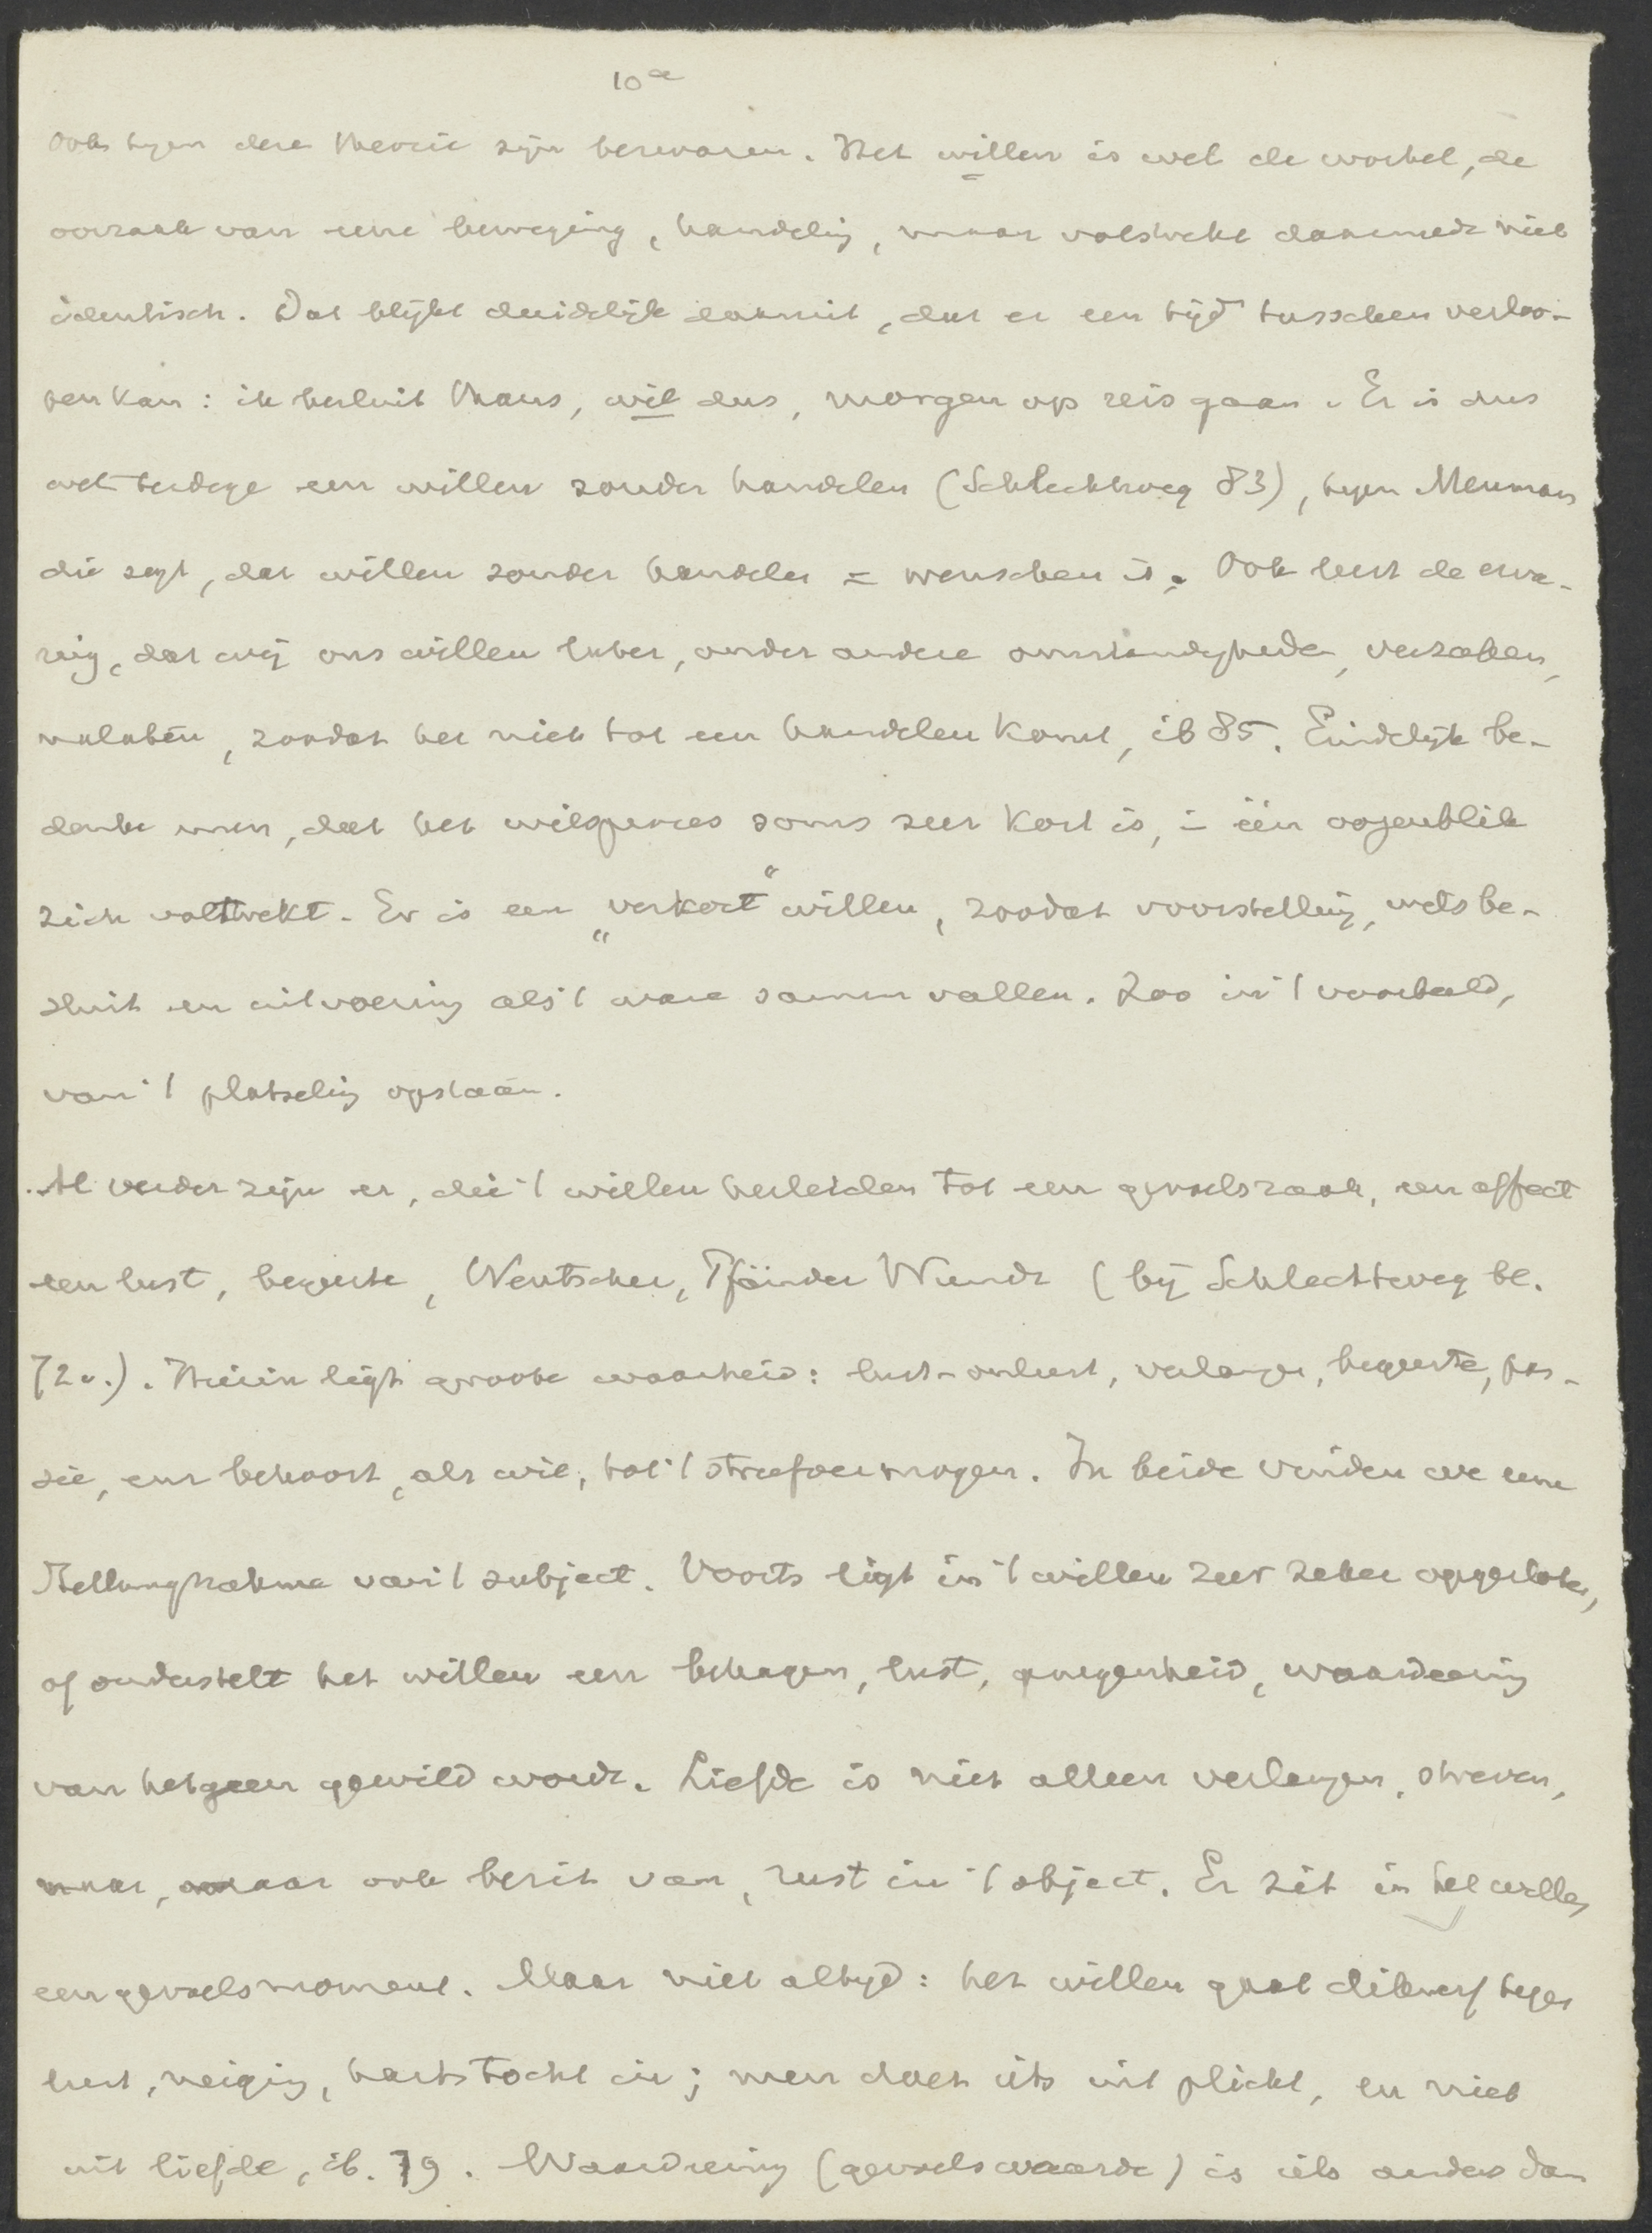 10a
Ook tegen deze theorie zijn bezwaren. Het willen is wel de wortel, de
oorzaak van eene beweging, handeling, maar volstrekt daarmede niet
identisch. Dat blijkt duidelijk daaruit, dat er een tijd tusschen verloo-
pen kan: ik besluit thans, wil dus, morgen op reis gaan. Er is dus
wel terdege een willen zonder handelen (Schlechtweg 83), tegen Meuman
die zegt, dat willen zonder handelen = wenschen is. Ook leert de erva-
ring, dat wij ons willen later, onder andere omstandigheden, verzaken,
nalaten, zoodat het niet tot een handelen komt, ib 85. Eindelijk be-
denke men, dat het wilsproces soms zeer kort is, in één oogenblik
zich voltrekt. Er is een „verkort“ willen, zoodat voorstelling, wilsbe-
sluit en uitvoering als 't ware samenvallen. Zoo in 't voorbeeld,
van 't plotseling opstaan.
Al verder zijn er, die 't willen herleiden tot een gevoelszaak, een affect
een lust, begeerte, Wentscher, Pfänder Wundt (bij Schlechtweg bl.
72v.). Hierin ligt groote waarheid: lust-onlust, verlangen, begeerte, pas-
sie, enz behoort, als wil, tot 't streefvermogen. In beide vinden we eene
Stellungnahme van 't subject. Voorts ligt in 't willen zeer zeker opgesloten,
of onderstelt het willen een behagen, lust, genegenheid, waardeering
van hetgeen gewild wordt. Liefde is niet alleen verlangen, streven,
naar, maar ook bezit van, rust in 't object. Er zit in het willen
een gevoelsmoment. Maar niet altijd: het willen gaat dikwerf tegen
lust, neiging, hartstocht in; men doet iets uit plicht, en niet
uit liefde, ib. 79. Waardeering (gevoelswaarde) is iets anders dan